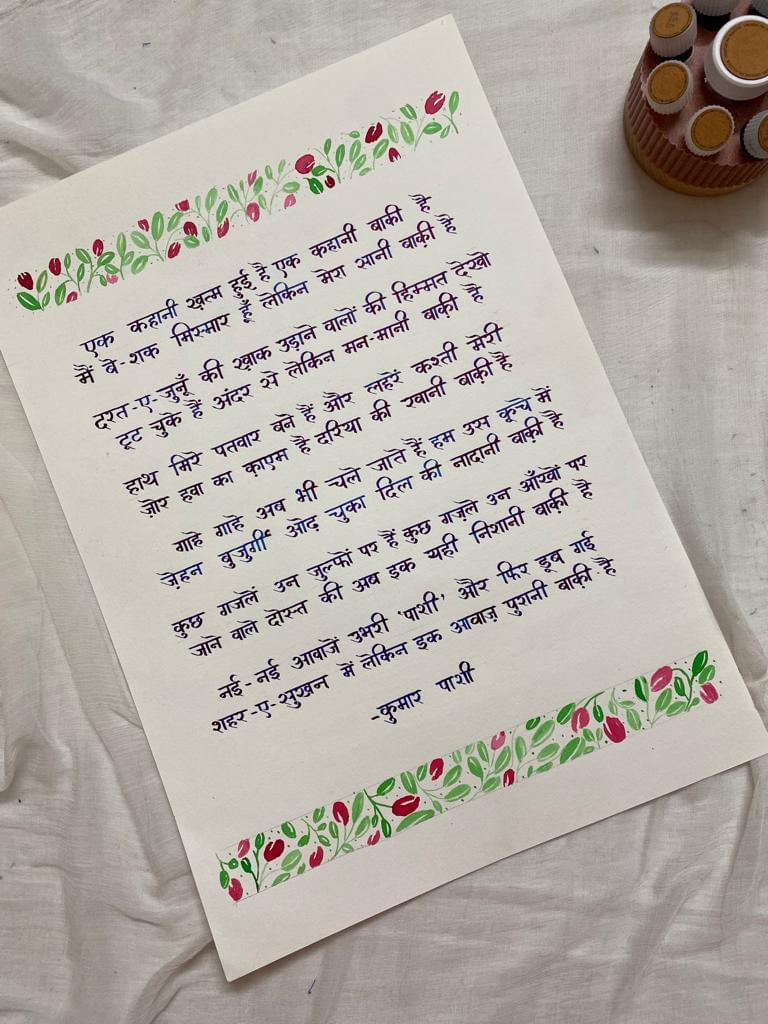 एक कहानी ख़त्म हुई है एक कहानी बाक़ी है
मैं बे-शक मिस्मार हूँ लेकिन मेरा सानी बाक़ी है
दश्त-ए-जुनूँ की ख़ाक उड़ाने वालों की हिम्मत देखो
टूट चुके हैं अंदर से लेकिन मन-मानी बाक़ी है
हाथ मिरे पतवार बने हैं और लहरें कश्ती मेरी
ज़ोर हवा का क़ाएम है दरिया की रवानी बाक़ी है
गाहे गाहे अब भी चले जाते हैं हम उस कूचे में
ज़ेहन बुज़ुर्गी ओढ़ चुका दिल की नादानी बाक़ी है
कुछ ग़ज़लें उन ज़ुल्फों पर हैं कुछ गज़ले उन आँखों पर
जाने वाले दोस्त की अब इक यही निशानी बाक़ी है
नई-नई आवाजें उभरी 'पाशी' और फिर डूब गई
शहर-ए-सुख़न में लेकिन इक आवाज़ पुरानी बाक़ी है
-कुमार पाशी